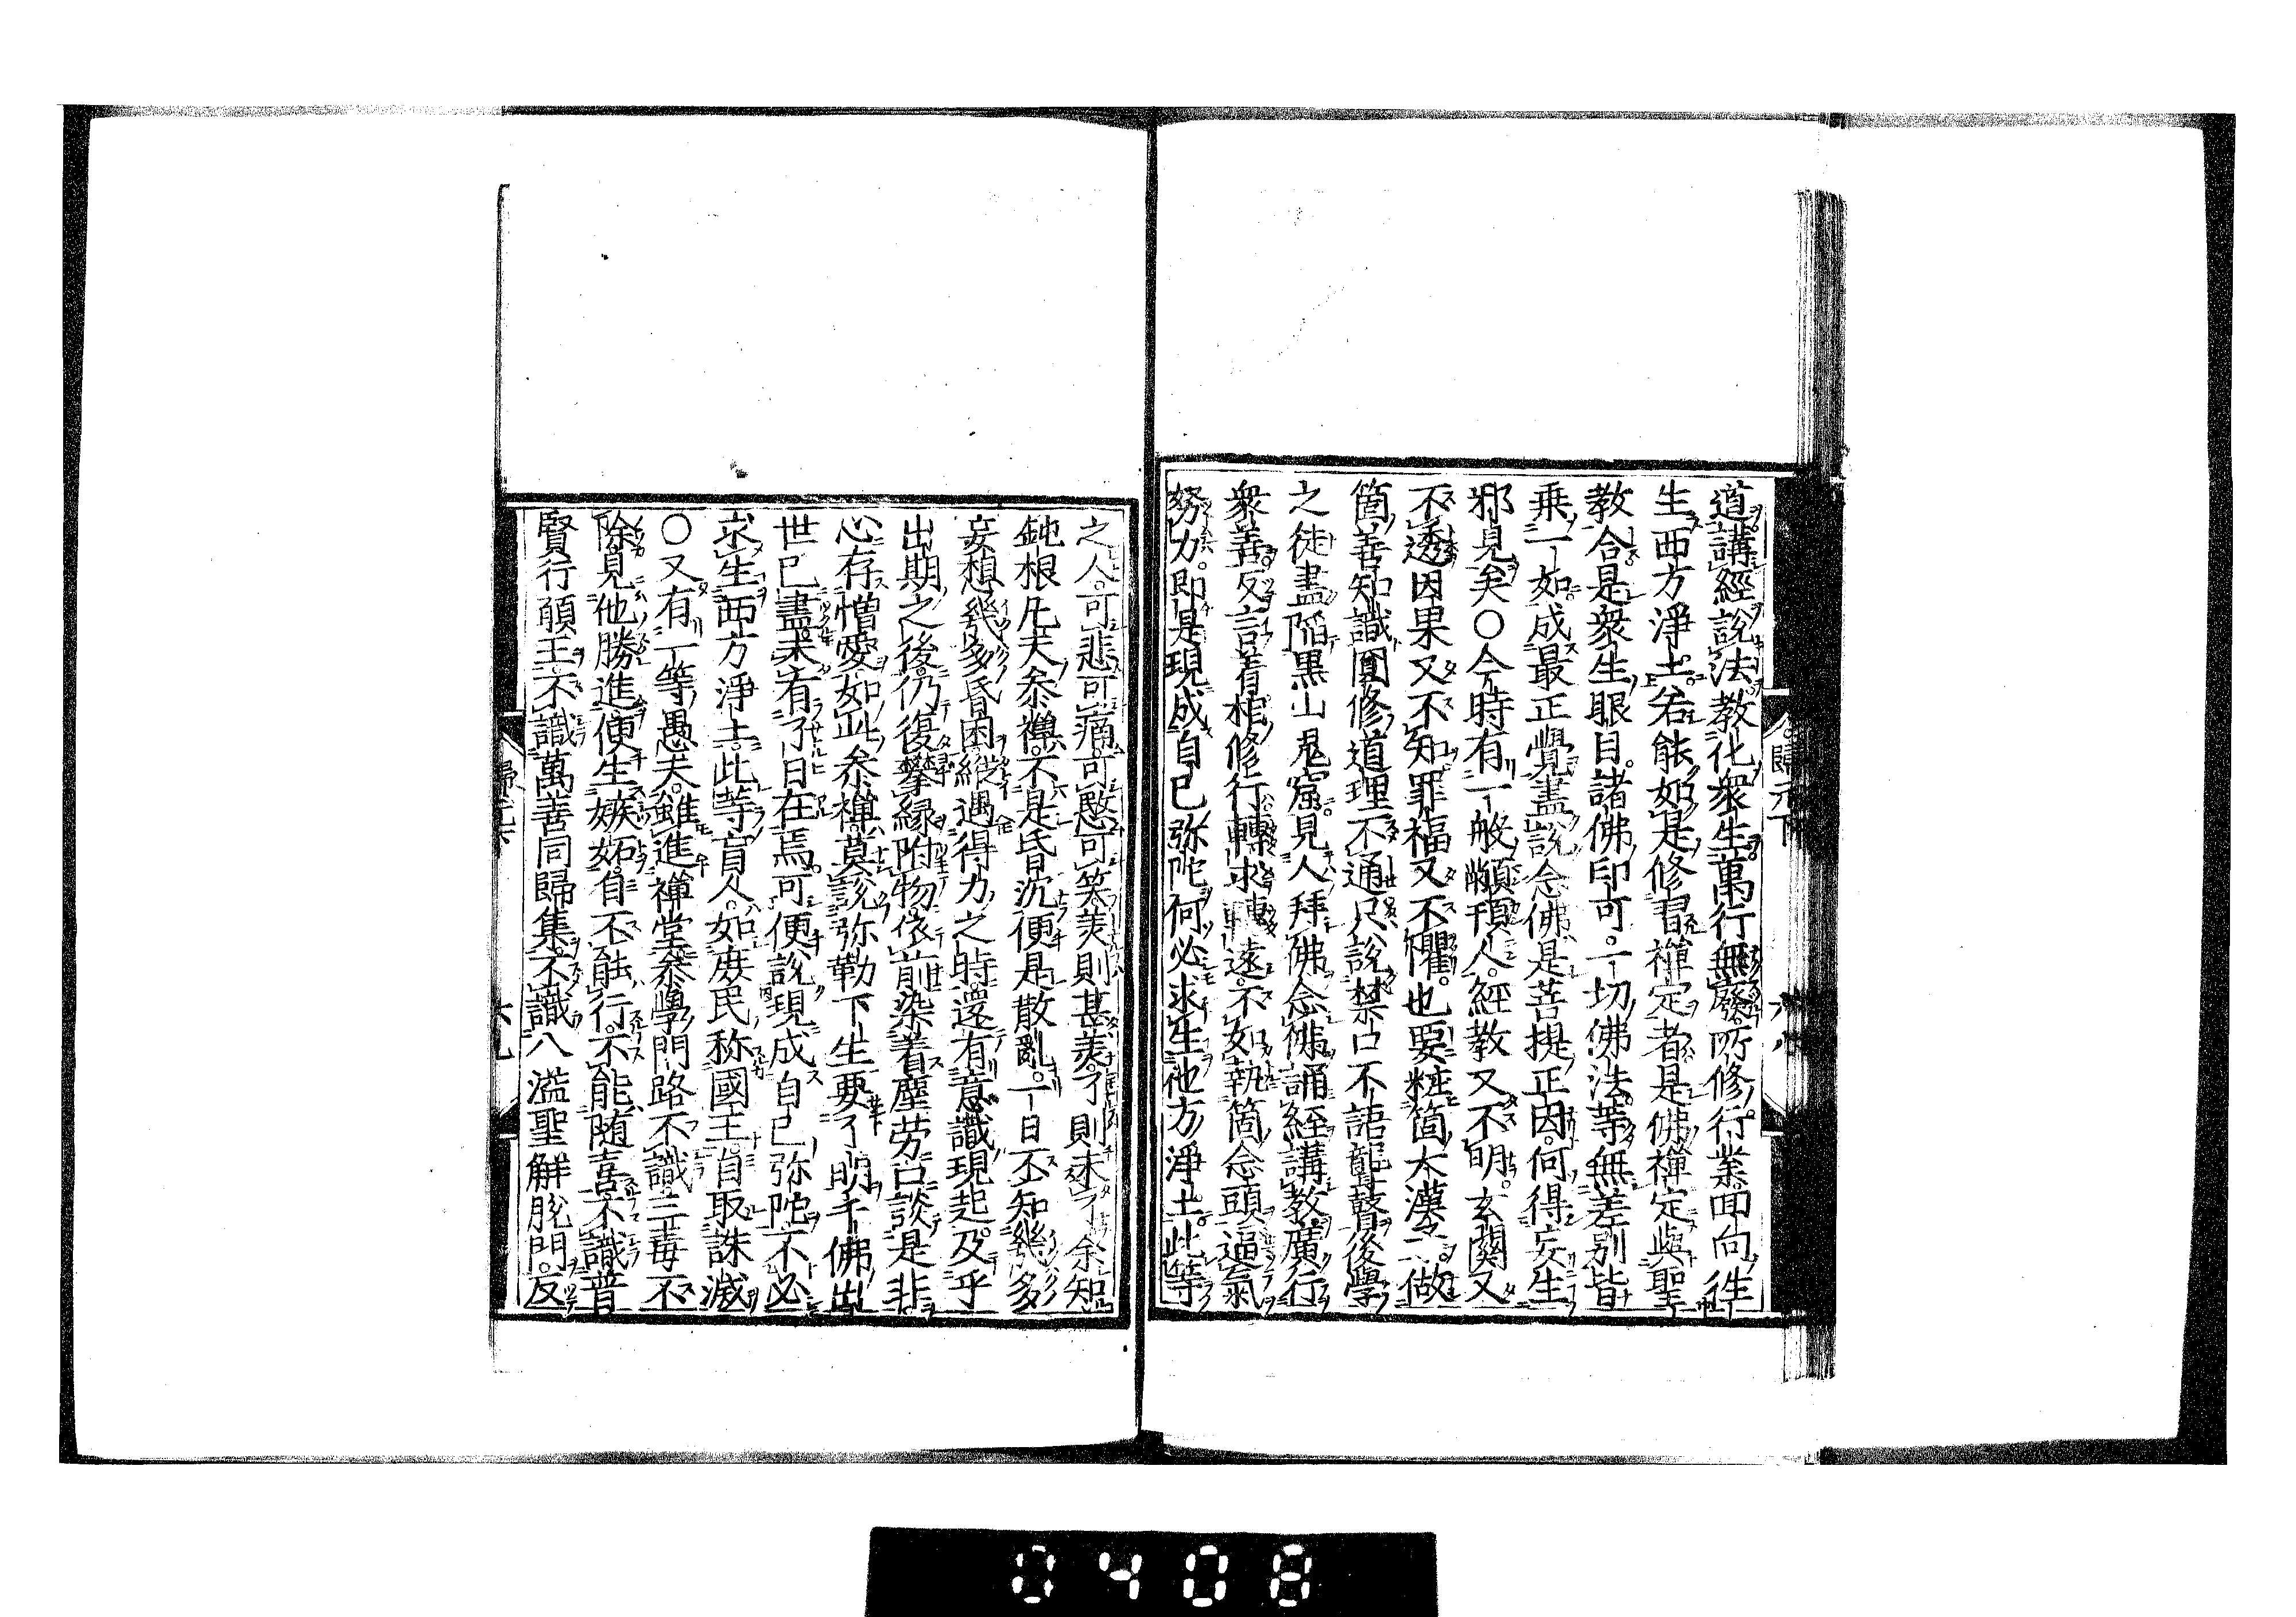 道講經説法教化衆生萬行無廢所修行業回向徃
生西方淨土若能如是修習禪定者是佛禪定與聖
教合是衆生眼目諸佛印可一切佛法等無差别皆
乗一如成最正覺盡説念佛是菩提正因何得妄生
邪見矣〇今時有一般顢頇人經教又不明玄關又
不透因果又不知罪福又不懼也要粧箇大漢二做
箇善知識圓修道理不通只説禁口不語聾瞽後學
之徒盡陥黒山鬼窟見人拜佛念佛誦経講教廣行
衆善反言着相修行轉求轉遠不如執箇念頭逼氣
努力即是現成自已弥陀何必求生他方淨土此等
之人可悲可痛可愍可笑羙則甚羙了則未了余知
鈍根凡夫叅禪不是昏沉便是散亂一日不知幾多
妄想幾多昏困縱遇得力之時還有意識現起及乎
出期之後仍復攀縁附物依前染着塵劳口談是非
心存憎愛如此叅禪莫説弥勒下生要了明千佛出
世已盡未有了日在焉可便説現成自已弥陀不必
求生西方淨土此等盲人如庻民称國王自取誅滅
〇又有一等愚夫雖進禪堂叅學門路不識三毒不
除見他勝進便生嫉妬自不能行不能随喜不識普
賢行願王不識萬善同歸集不識八溢聖解脱門反
歸元下
六八
六九
0408